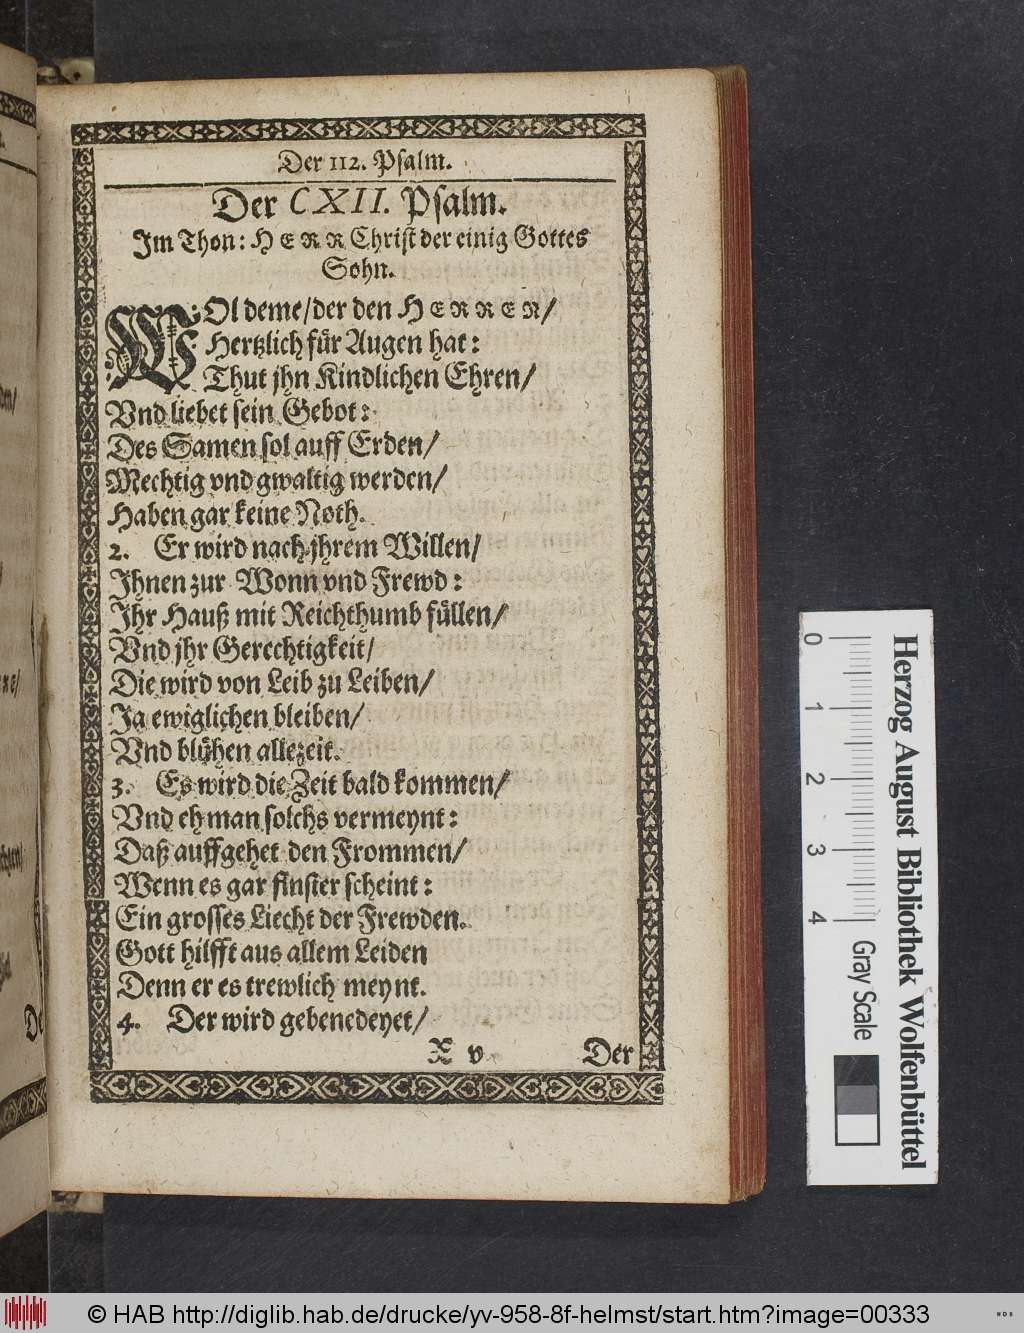 Der 112. Psalm.
Der CXII. Psalm.
Im Thon: HERR Christ der einig Gottes
Sohn.
WOl deme/ der den HERREN/
Hertzlich für Augen hat:
Thut jhn Kindlichen Ehren/
Vnd liebet sein Gebot:
Des Samen sol auff Erden/
Mechtig vnd gwaltig werden/
Haben gar keine Noth.
2. Er wird nach jhrem Willen/
Ihnen zur Wonn vnd Frewd:
Ihr Hauß mit Reichthumb füllen/
Vnd jhr Gerechtigkeit/
Die wird von Leib zu Leiben/
Ja ewiglichen bleiben/
Vnd blühen allezeit.
3. Es wird die Zeit bald kommen/
Vnd eh man solchs vermeynt:
Daß auffgehet den Frommen/
Wenn es gar finster scheint:
Ein grosses Liecht der Frewden.
Gott hilfft aus allem Leiden
Denn er es trewlich meynt.
4. Der wird gebenedeyet/
X v
Der
0 1 2 3 4
Gray Scale
Herzog August Bibliothek Wolfenbüttel
© HAB http://diglib.hab.de/drucke/yv-958-8f-helmst/start.htm?image=00333